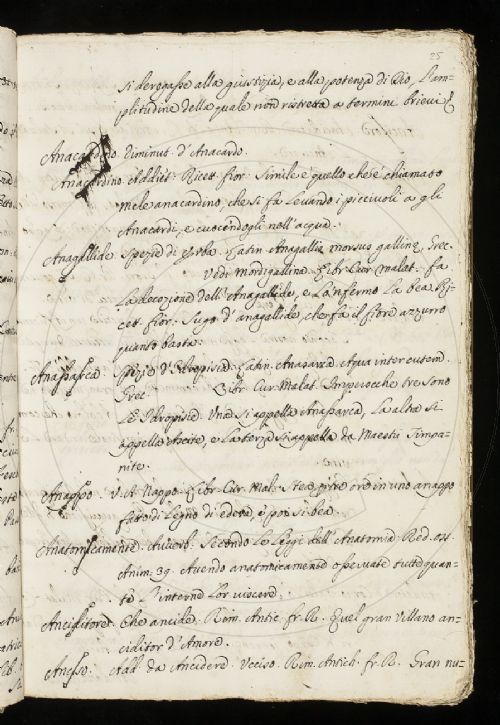 25
si derogasse alla giustizia, e alla potenza di Dio, l'am-
plitudine della quale non ristretta a termini brievi
Anacardino. Diminut. d'Anacardo.
Anacardino Addiet. Ricet. fior. Simile è quello che è chiamato
mele anacardino, che si fa levando i picciuoli a gli
Anacardi, e cuocendogli nell'acqua.
Anagallide Spezie di Erba. Latin. Anagallis morsus gallinæ, Grec.
Vedi Mordigallina. Libr. Cur. Malat. fa
la decozione dell'Anagallide, e lo 'nfermo la bea Ri-
cett. fior. Sugo d'anagallide, che fa il fiore azzurro
quanto basta.
Anassarca. Spezie d'Idropisia. Latin. Anasarca Aqua inter cutem.
Grec. Libr. Cur. Malat. Imperocche tre sono
le Idropisie. Una si appella Anassarca, la altra si
appella Ascite, e la terza si appella da Maestri Timpa-
nite.
Anappo. V. A. Nappo. Libr. Cur. Mal. Stea per tre ore in uno anappo
fatto di legno di edera e poi si bea.
Anatomicamente. Avverb. Secondo le leggi dell'Anatomia Red. oss.
Anim. 39. Avendo anatomicamente osservate tutte quan-
te l'interne lor viscere.
Anciditore. Che ancide. Rim. Antic. fr. R. Quel gran Villano an-
ciditor d'Amore.
Anciso. Add. da Ancidere. Ucciso. Rim. Antich. fr. R. Gran nu-